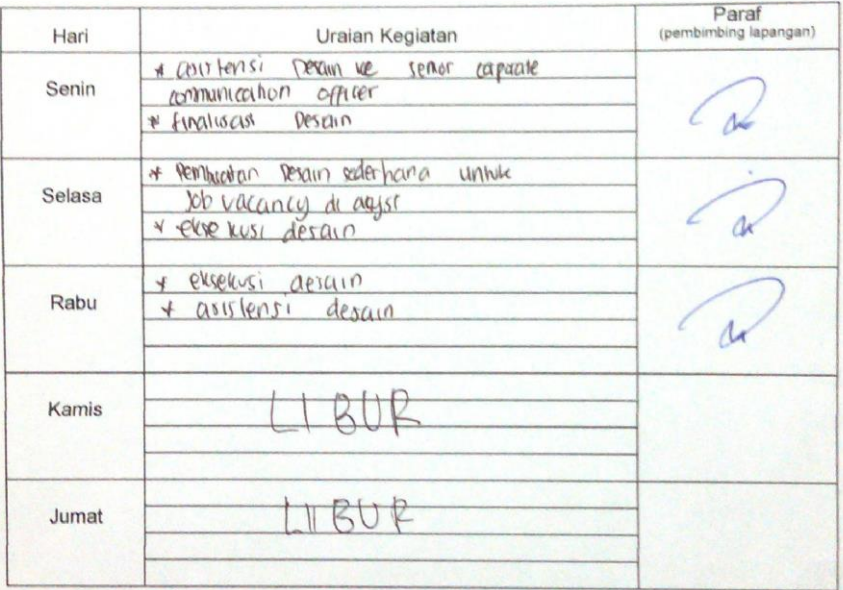 Hari Uraian Kegiatan Paraf
(pembimbing lapangan)
Senin
* asistensi Desain ke senior
communication officer
* finalisasi Desain
Selasa
* Pembuatan Desain sederhana untuk
Job vacancy di
* eksekusi desain
Rabu
* eksekusi desain
* asistensi desain
Kamis
LIBUR
Jumat
LIBUR